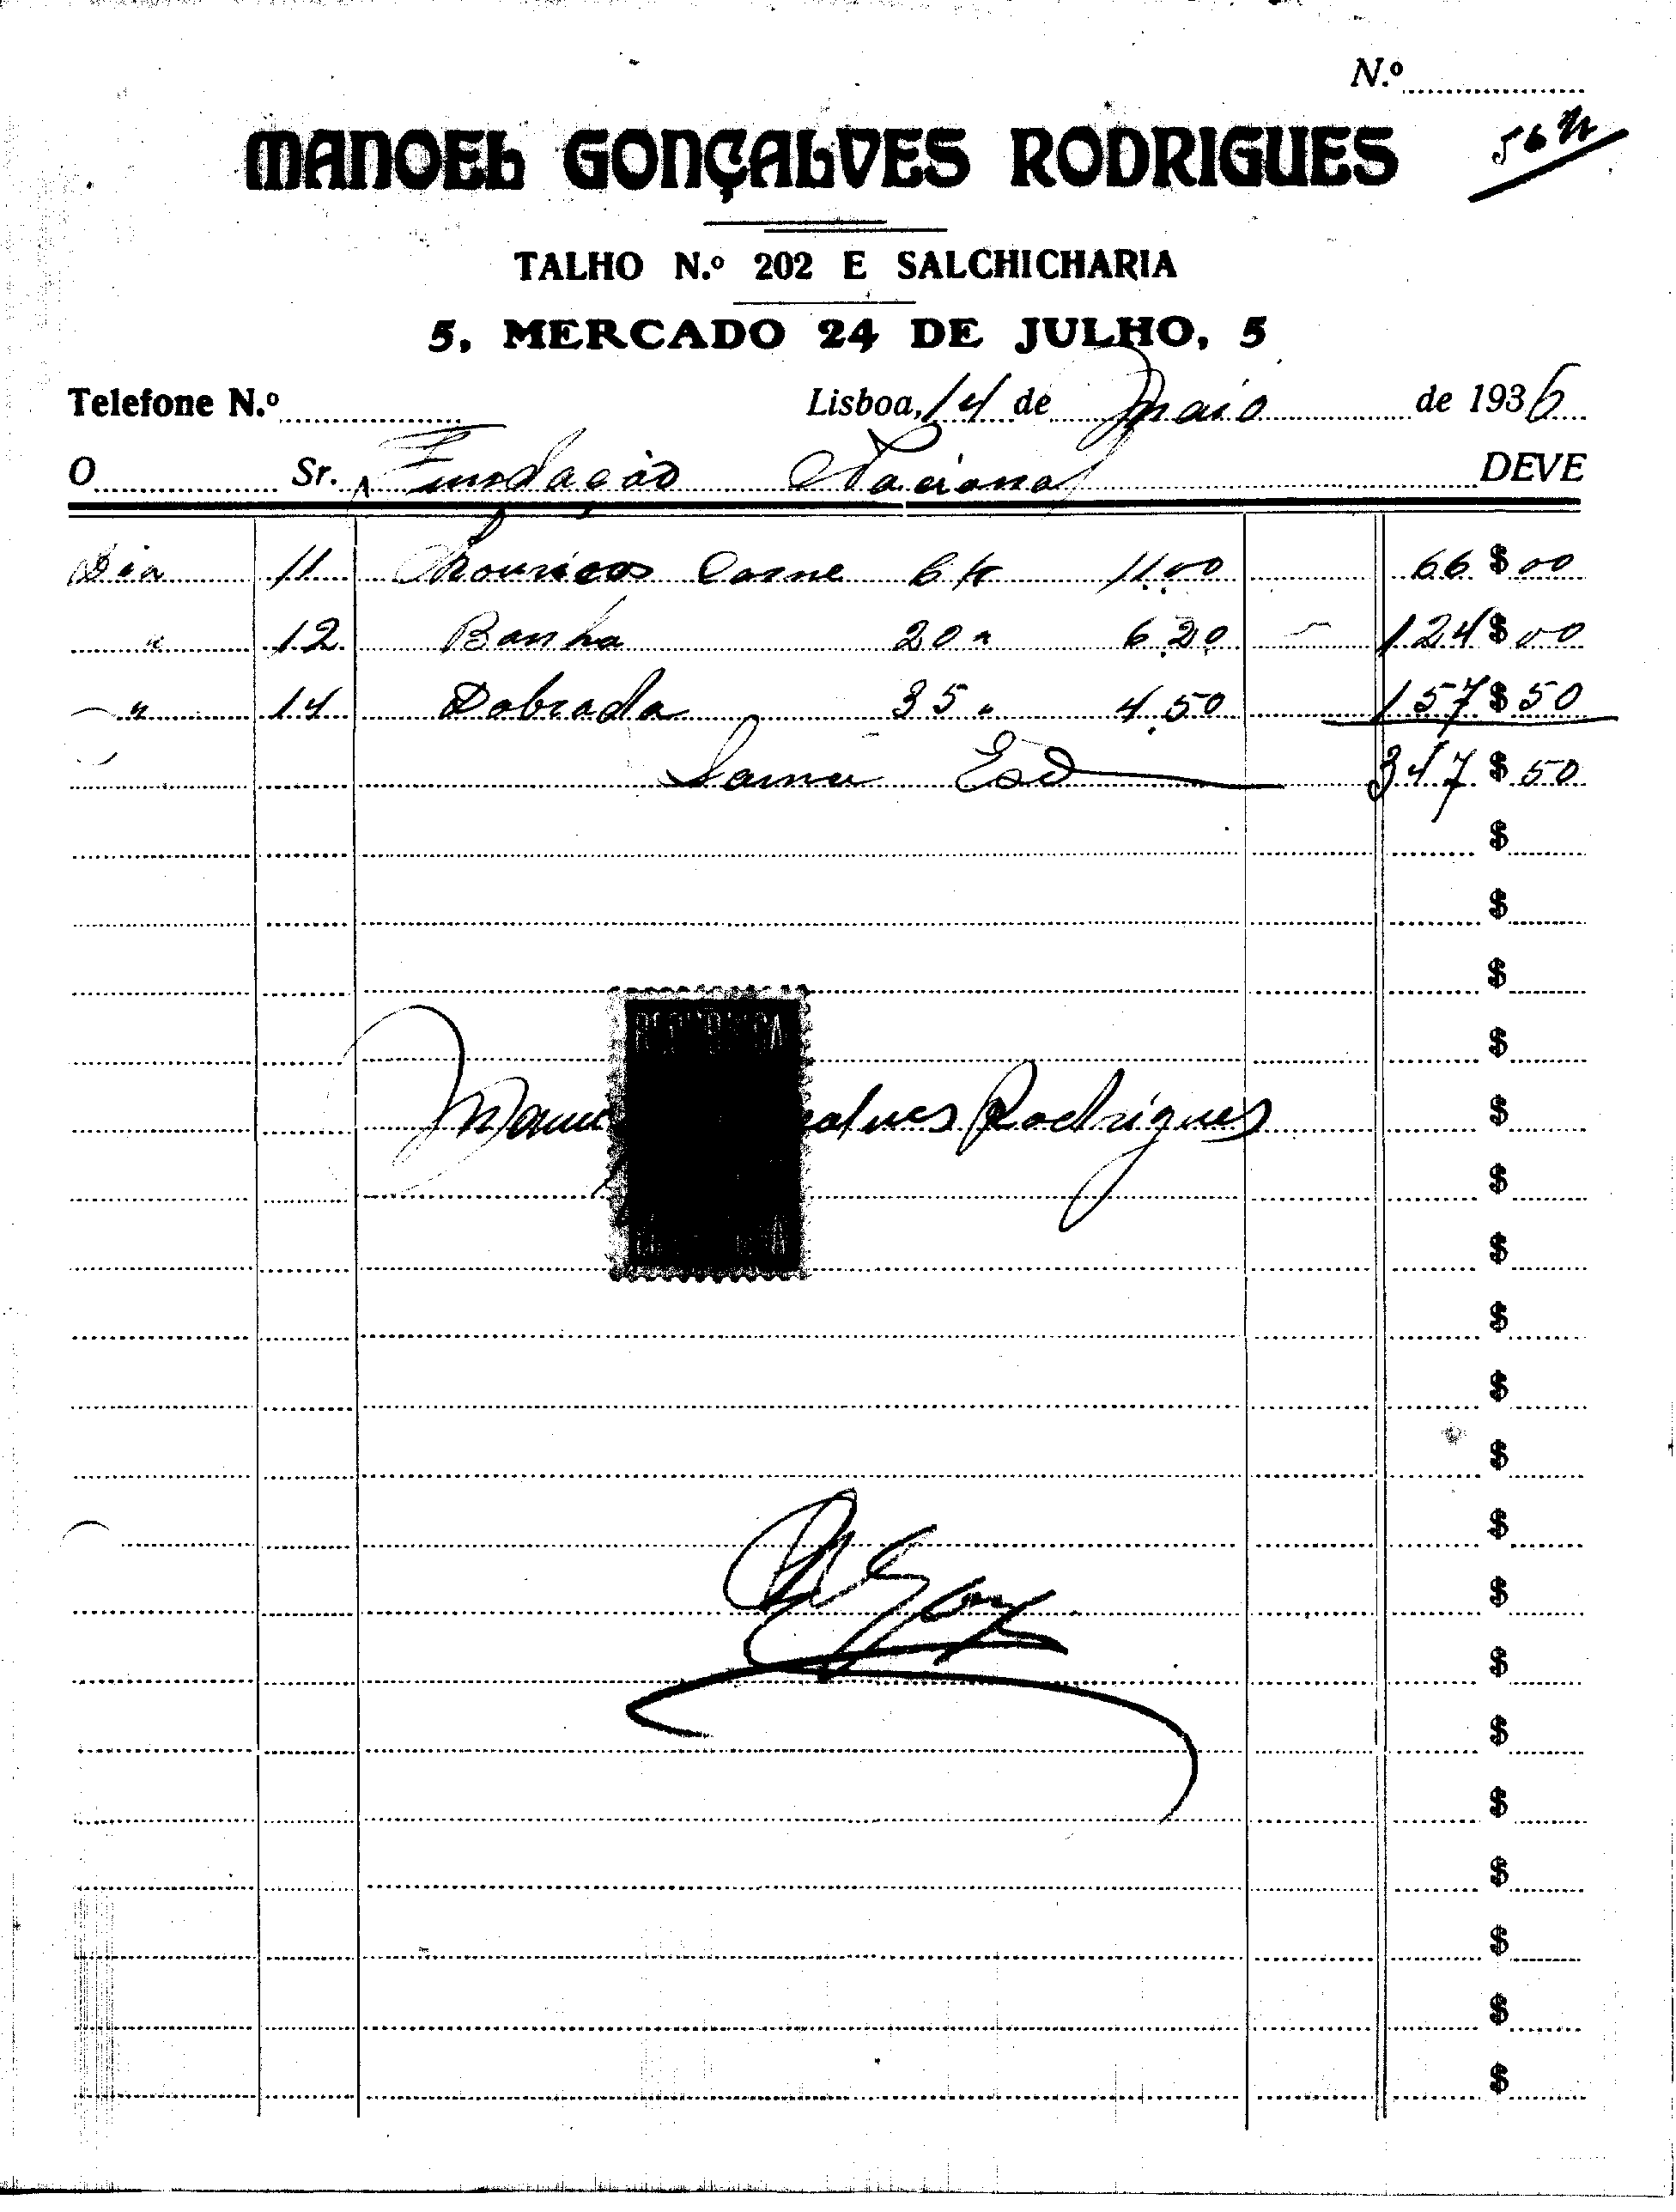 N.º
MANOEL GONÇALVES RODRIGUES
TALHO N.º 202 E SALCHICHARIA
5, MERCADO 24 DE JULHO, 5
Telefone N.º Lisboa, 14 de Maio de 1936
O Sr. A Fundação Nacional DEVE
Dia 11 Chouriços Carne 6 k 11.00 66 $ 00
" 12 Banha 20 " 6.20 124 $ 00
" 14 Dobrada 35 " 4.50 157 $ 50
Soma Esc 347 $ 50
$
$
$
REPUBLICA
$
Rodrigues $
$
$
$
$
$
$
$
$
$
$
$
$
$
$